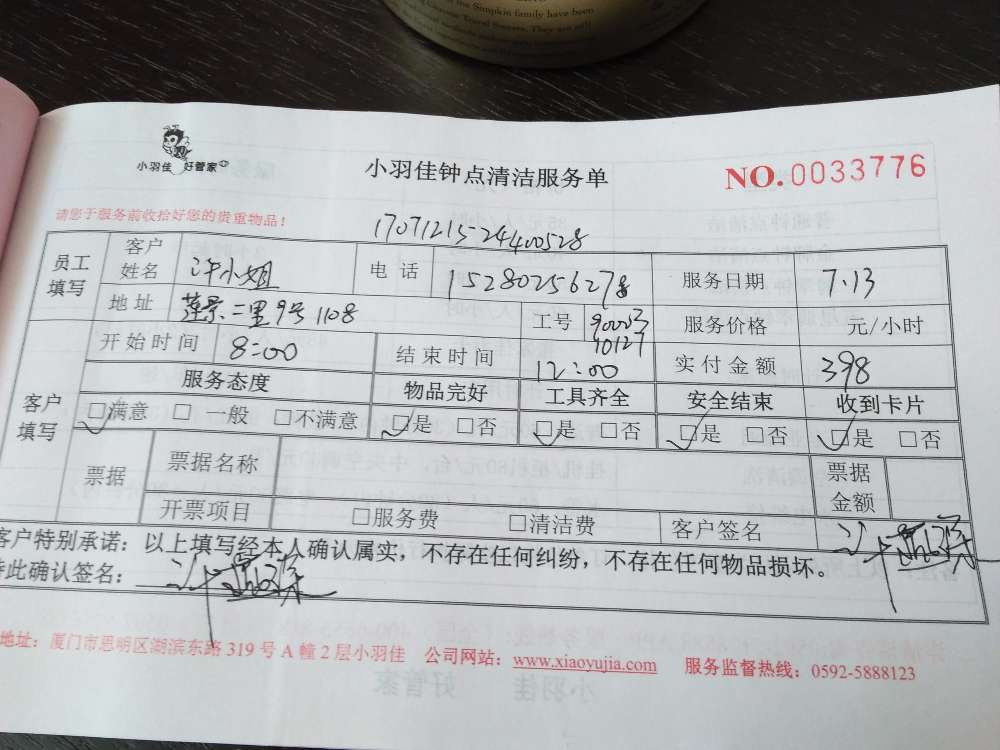 the Simpkin family have been
小羽佳 好管家
小羽佳钟点清洁服务单
NO.0033776
请您于服务前收拾好您的贵重物品！
17071215-24400528
员工填写 客户姓名 许小姐 电话 15280256278 服务日期 7.13
地址 莲景二里9号1108 工号 90003 10127 服务价格 元/小时
开始时间 8:00 结束时间 12:00 实付金额 398
客户填写 服务态度 物品完好 工具齐全 安全结束 收到卡片
□满意 □一般 □不满意 □是 □否 □是 □否 □是 □否 □是 □否
票据 票据名称 票据金额
开票项目 □服务费 □清洁费 客户签名
客户特别承诺：以上填写经本人确认属实，不存在任何纠纷，不存在任何物品损坏。
特此确认签名：
地址：厦门市思明区湖滨东路319号A幢2层小羽佳 公司网站：www.xiaoyujia.com 服务监督热线：0592-5888123